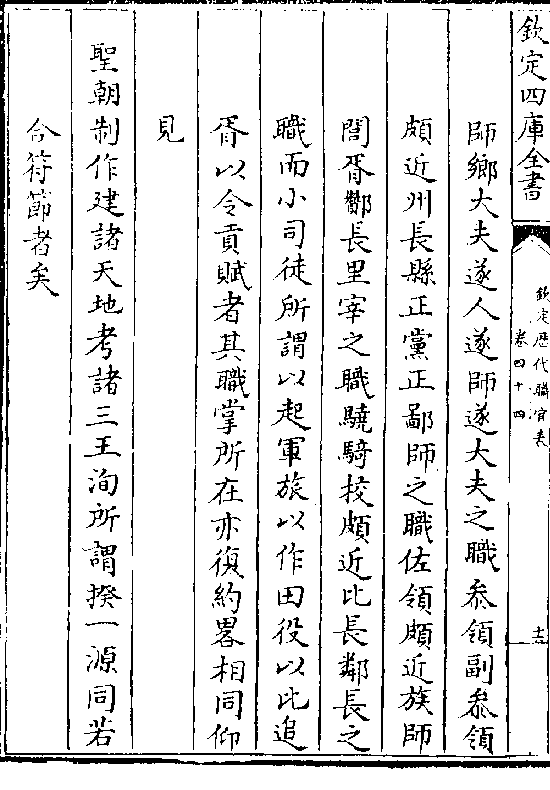 欽定四庫全書
欽定歷代職官表
卷四十四
十三
師鄉大夫遂人遂師遂大夫之職叅領副叅領
頗近州長縣正黨正鄙師之職佐領頗近族師
閭胥酇長里宰之職驍騎校頗近比長鄰長之
職而小司徒所謂以起軍旅以作田役以比追
胥以令貢賦者其職掌所在亦復約畧相同仰
見
聖朝制作建諸天地考諸三王洵所謂揆一源同若
合符節者矣